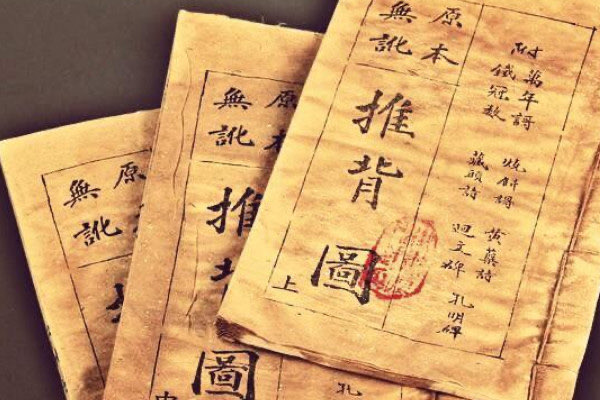 附
萬年謌
鐵冠數
燒餅謌
藏頭詩
黃蘗詩
迴文碑
孔明碑
原本
無訛
推背圖
上
原本
無訛
推背圖
中
孔
原
無訛